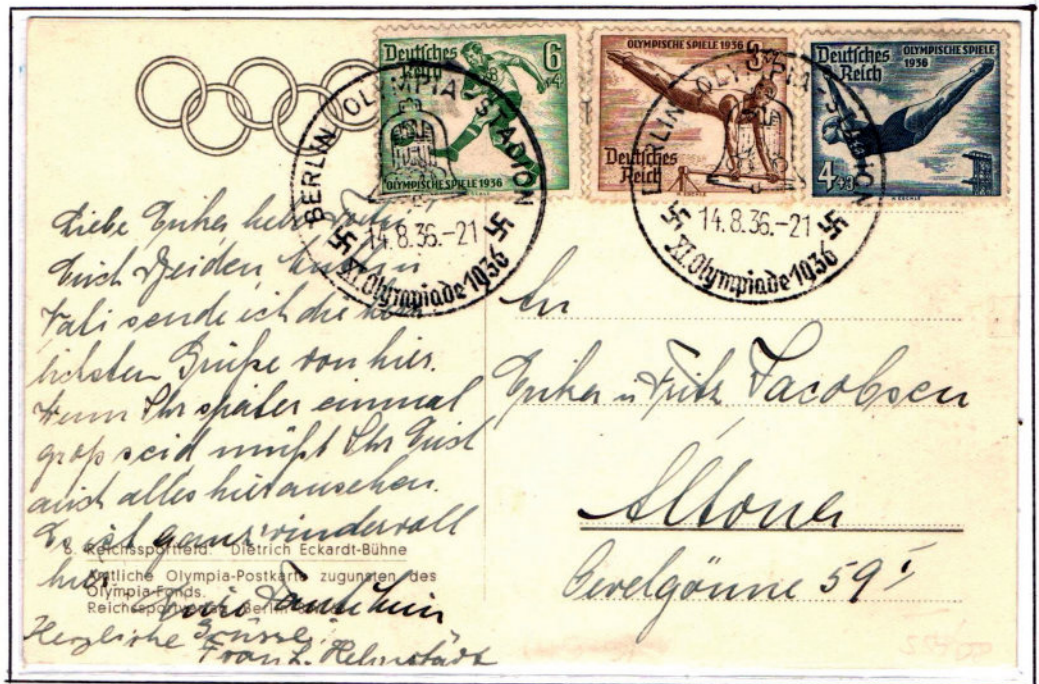 Deutsches
Reich
6
+4
OLYMPISCHE SPIELE 1936
OLYMPISCHE SPIELE 1936
Deutsches
Reich
Deutsches
Reich
OLYMPISCHE SPIELE
1936
4+3
BERLIN OLYMPIA-STADION
14.8.36.-21
XI. Olympiade 1936
BERLIN OLYMPIA-STADION
14.8.36.-21
XI. Olympiade 1936
Liebe
Euch beiden
sende ich die herz
lichsten Grüße von hier.
Wenn Ihr später einmal
groß seid müßt Ihr Euch
auch alles hier ansehen.
Es ist ganz wundervoll
hier.
Herzliche Grüsse
6. Reichssportfeld: Dietrich Eckardt-Bühne
Amtliche Olympia-Postkarte zugunsten des
Olympia-Fonds.
Reichssportverlag Berlin
An
u Fritz Jacobsen
Altona
59 I